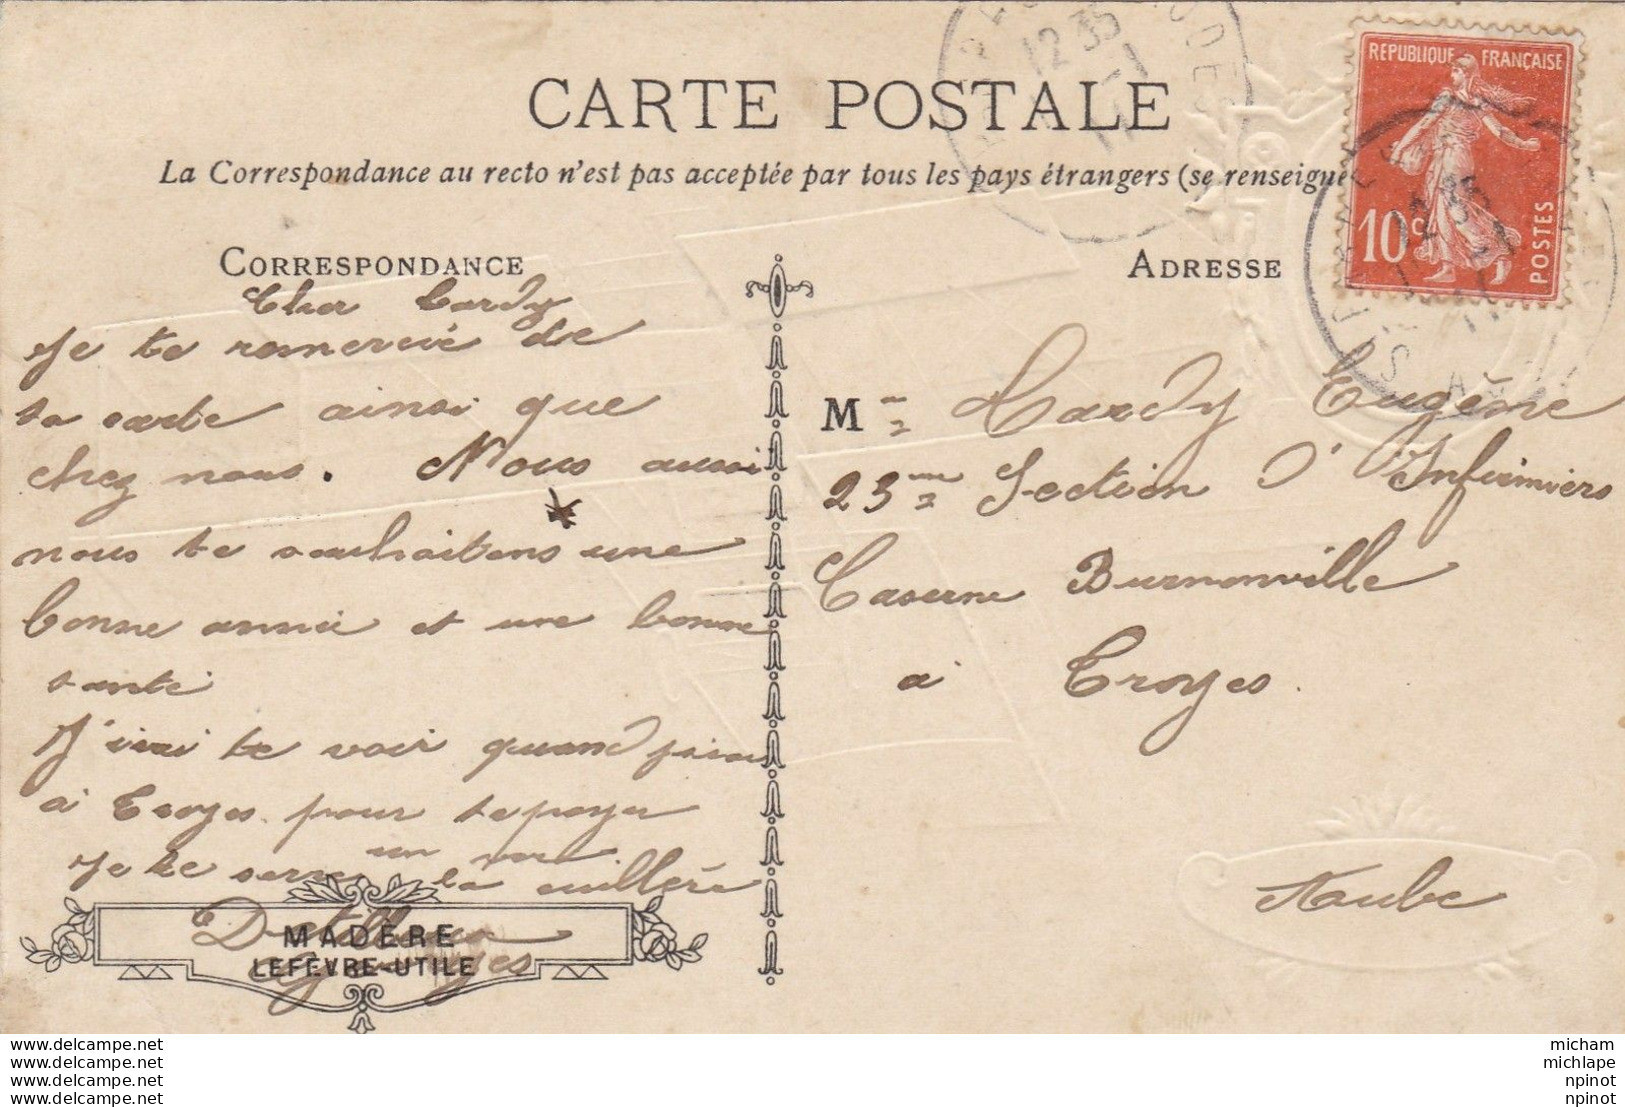 CARTE POSTALE
La Correspondance au recto n'est pas acceptée par tous les pays étrangers (se renseigne
REPUBLIQUE FRANÇAISE
10c
POSTES
12 35
CORRESPONDANCE
Cher Cardy
Je te remercie de
ta carte ainsi que
chez nous. Nous aussi
nous te souhaitons une
bonne année et une bonne
santé
J'irai te voir quand j'irai
à Troyes pour te payer
un
Je te serre la cuillère
MADÈRE
LEFÈVRE-UTILE
ADRESSE
M Cardy Eugène
23me Section d'Infirmiers
Caserne Burnonville
à Troyes.
Aube
www.delcampe.net
www.delcampe.net
www.delcampe.net
www.delcampe.net
micham
michlape
npinot
npinot